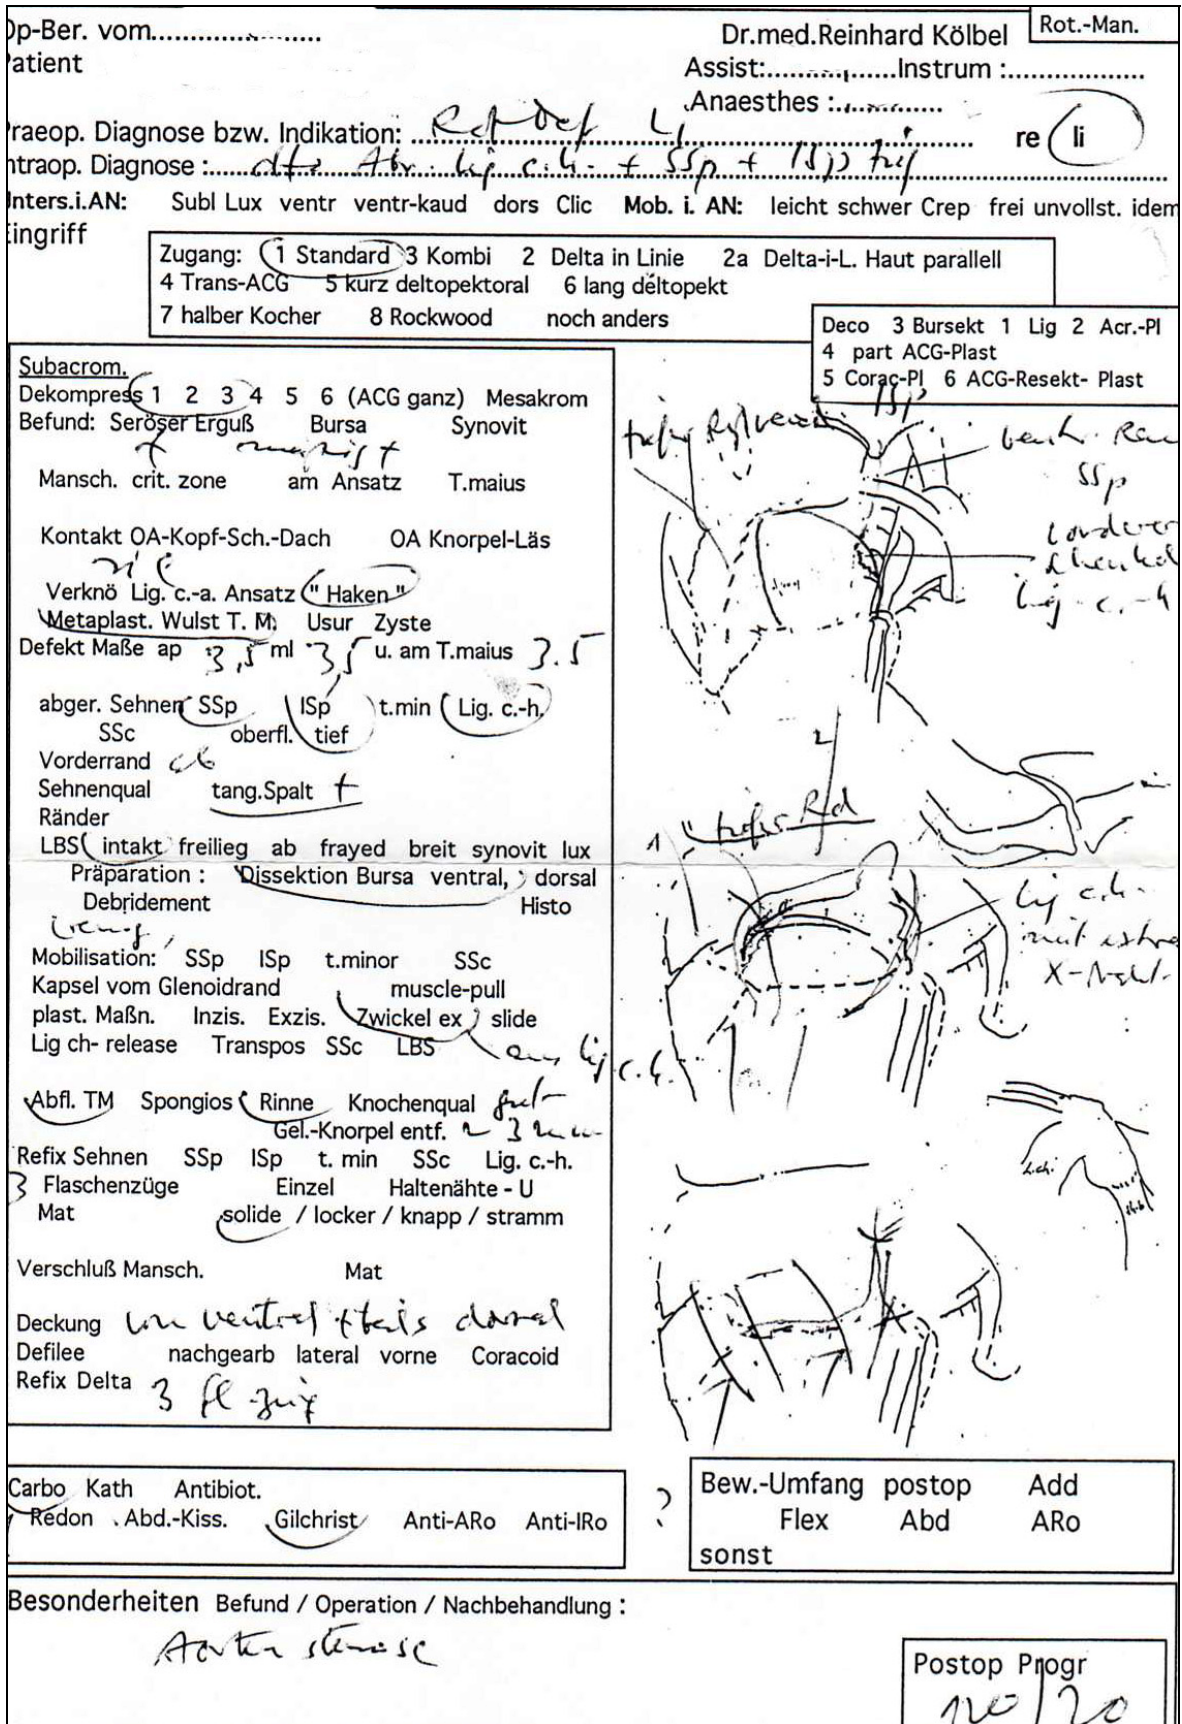 Op-Ber. vom
Dr.med.Reinhard Kölbel
Rot.-Man.
Patient
Assist: Instrum :
Anaesthes :
Praeop. Diagnose bzw. Indikation: Rot Def li
re li
Intraop. Diagnose : dto Abr. Lig c.h. + SSp + ISp tief
Unters.i.AN: Subl Lux ventr ventr-kaud dors Clic Mob. i. AN: leicht schwer Crep frei unvollst. idem
Eingriff
Zugang: 1 Standard 3 Kombi 2 Delta in Linie 2a Delta-i-L. Haut parallell
4 Trans-ACG 5 kurz deltopektoral 6 lang deltopekt
7 halber Kocher 8 Rockwood noch anders
Deco 3 Bursekt 1 Lig 2 Acr.-Pl
4 part ACG-Plast
5 Corac-Pl 6 ACG-Resekt- Plast
Subacrom.
Dekompress 1 2 3 4 5 6 (ACG ganz) Mesakrom
Befund: Seröser Erguß Bursa Synovit
+ +
Mansch. crit. zone am Ansatz T.maius
Kontakt OA-Kopf-Sch.-Dach OA Knorpel-Läs
Verknö Lig. c.-a. Ansatz " Haken "
Metaplast. Wulst T. M. Usur Zyste
Defekt Maße ap 3,5 ml 3,5 u. am T.maius 3.5
abger. Sehnen SSp ISp t.min Lig. c.-h.
SSc oberfl. tief
Vorderrand ab
Sehnenqual tang.Spalt +
Ränder
LBS intakt freilieg ab frayed breit synovit lux
Präparation : Dissektion Bursa ventral, dorsal
Debridement Histo
wenig
Mobilisation: SSp ISp t.minor SSc
Kapsel vom Glenoidrand muscle-pull
plast. Maßn. Inzis. Exzis. Zwickel ex slide
Lig ch- release Transpos SSc LBS
aus Lig c.h.
Abfl. TM Spongios Rinne Knochenqual gut
Gel.-Knorpel entf. ~ 3 mm
Refix Sehnen SSp ISp t. min SSc Lig. c.-h.
3 Flaschenzüge Einzel Haltenähte - U
Mat solide / locker / knapp / stramm
Verschluß Mansch. Mat
Deckung von ventral + teils dorsal
Defilee nachgearb lateral vorne Coracoid
Refix Delta 3 fl-züg
ISp
SSp
vorderer
Schenkel
Lig c.-h
2
1 " tiefer Rd
Lig c.h.
mit extra
X-Naht
Carbo Kath Antibiot.
Redon Abd.-Kiss. Gilchrist Anti-ARo Anti-IRo
?
Bew.-Umfang postop Add
Flex Abd ARo
sonst
Besonderheiten Befund / Operation / Nachbehandlung :
Aortenstenose
Postop Progr